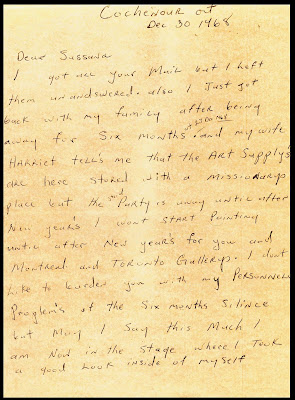 Cochenour ont
Dec 30 1968
Dear Sussuna
I got all your Mail but I left
them unandswered. also I Just got
back with my family after being
away for Six months. and my wife
HARRiet tell's me that the ART Supply's
are here Stored with a Missionarys
place but the Party is away until after
New year's I wont START Painting
until after New year's for you and
Montreal and TORONTO Gallerys. I dont
Like to burden you with my PERSONNEL
Proglem's of the Six months Silince
but May I Say this Much I
am Now in the Stage where I Took
a good Look inside of myself